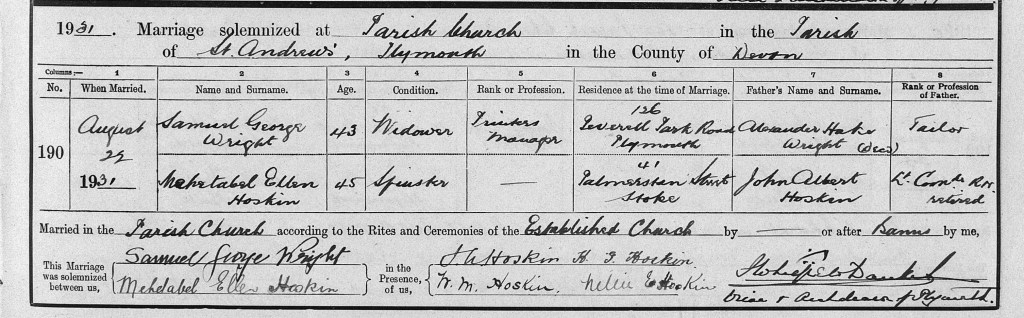 1931. Marriage solemnized at Parish Church in the Parish
of St. Andrews', Plymouth in the County of Devon
Columns :— 1 2 3 4 5 6 7 8
No. When Married. Name and Surname. Age. Condition. Rank or Profession. Residence at the time of Marriage. Father's Name and Surname. Rank or Profession of Father.
190
August 22 Samuel George Wright 43 Widower Printers Manager 126 Peverell Park Road Plymouth Alexander Hake Wright (decd) Tailor
1931 Mehetabel Ellen Hoskin 45 Spinster — 41 Palmerston Street Stoke John Albert Hoskin Lt Comdr R.N. retired
Married in the Parish Church according to the Rites and Ceremonies of the Established Church by — or after Banns by me,
This Marriage was solemnized between us, Samuel George Wright
Mehetabel Ellen Hoskin
in the Presence of us, J A Hoskin H. J. Hoskin
W. M. Hoskin. Nellie E Hoskin
Vicar & Archdeacon of Plymouth.